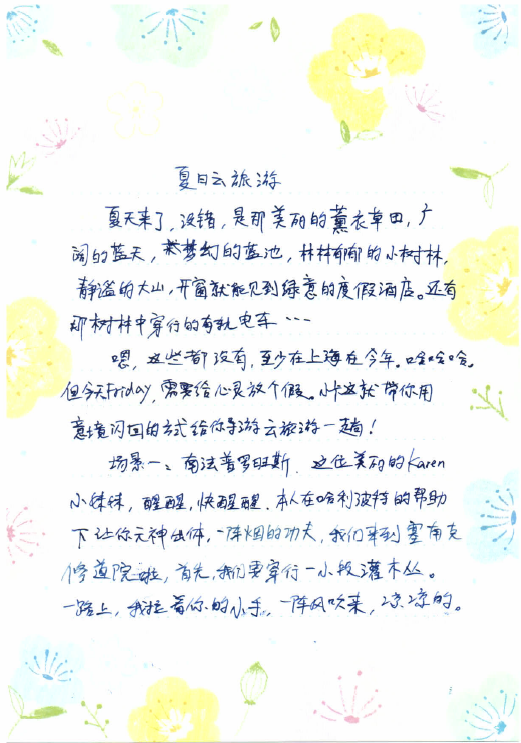 夏日云旅游
夏天来了，没错，是那美丽的薰衣草田，广
阔的蓝天，梦幻的蓝池，林林郁郁的小树林，
静谧的大山，开窗就能见到绿意的度假酒店。还有
那树林中穿行的有轨电车……
嗯，这些都没有，至少在上海在今年。哈哈哈。
但今天Friday，需要给心灵放个假。小卡这就带你用
意境闪回的方式给你导游云旅游一趟！
场景一：南法普罗旺斯，这位美丽的Karen
小妹妹，醒醒，快醒醒，本人在哈利波特的帮助
下让你元神出体，一阵烟的功夫，我们来到塞南克
修道院啦，首先，我们要穿行一小段灌木丛。
一路上，我拉着你的小手，一阵风吹来，凉凉的。